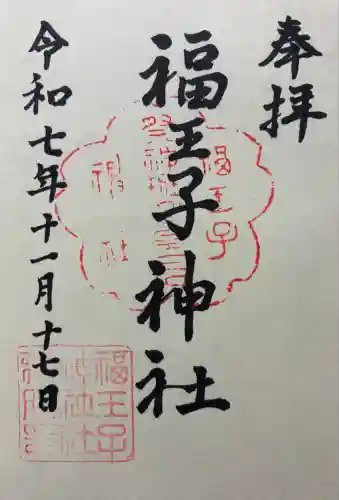 奉拝
福王子神社
令和七年十一月十七日
福王子
鎮社
福王子
神社